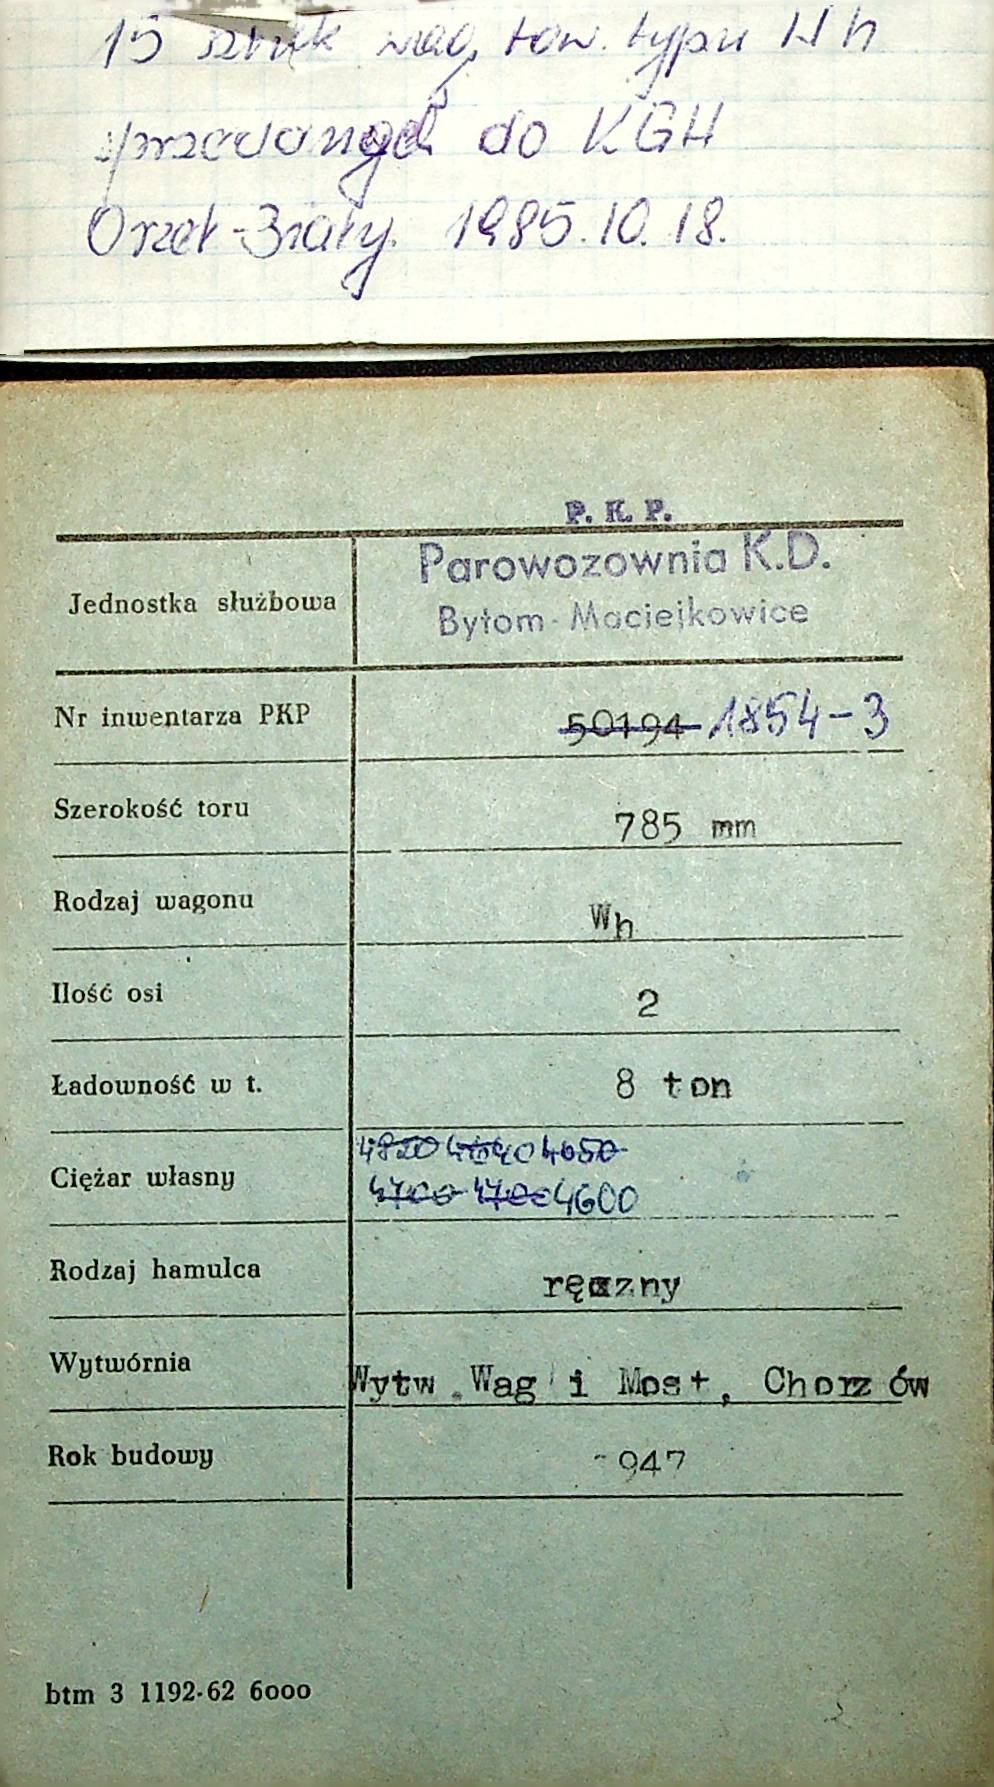 15 sztuk wag. tow. typu Wh
sprzedanych do KGH
Orzeł-Biały. 1985.10.18.
P. K. P.
Parowozownia K.D.
Jednostka służbowa
Bytom-Maciejkowice
Nr inwentarza PKP 50194 1854-3
Szerokość toru 785 mm
Rodzaj wagonu Wh
Ilość osi 2
Ładowność w t. 8 ton
4820 4640 4650
Ciężar własny
4700 4700 4600
Rodzaj hamulca ręczny
Wytwórnia Wytw. Wag i Most, Chorzów
Rok budowy 947
btm 3 1192-62 6000